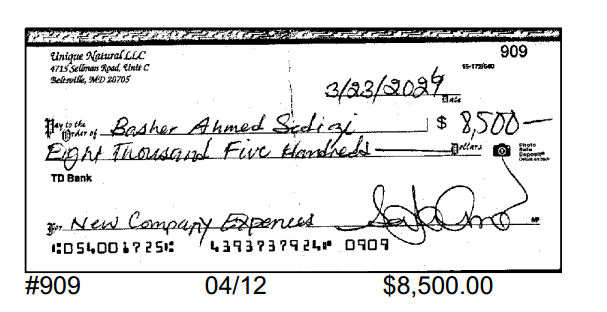 Unique Natural LLC
4715 Sellman Road, Unit C
Beltsville, MD 20705
909
15-172/540
3/23/2024
Date
Pay to the
Order of Basher Ahmed Sediqi $ 8,500
Eight Thousand Five Hundreds Dollars
Photo
Safe
Deposit®
TD Bank
For New Company Expences
MP
⑆054001725⑆ 4393737924⑈ 0909
#909 04/12 $8,500.00